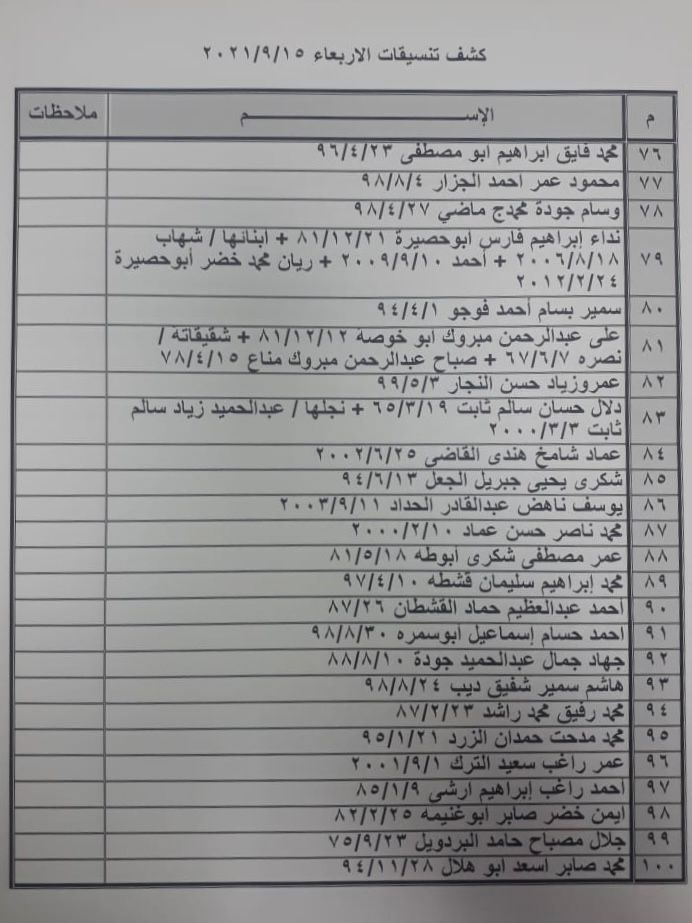 كشف تنسيقات الاربعاء ٢٠٢١/٩/١٥
م الإســـــــــم ملاحظات
٧٦ محمد فايق ابراهيم ابو مصطفى ٩٦/٤/٢٣
٧٧ محمود عمر احمد الجزار ٩٨/٨/٤
٧٨ وسام جودة محمدج ماضي ٩٨/٤/٢٧
٧٩ نداء إبراهيم فارس ابوحصيرة ٨١/١٢/٢١ + ابنائها / شهاب
٢٠٠٦/٨/١٨ + أحمد ٢٠٠٩/٩/١٠ + ريان محمد خضر أبوحصيرة
٢٠١٢/٢/٢٤
٨٠ سمير بسام أحمد فوجو ٩٤/٤/١
٨١ على عبدالرحمن مبروك ابو خوصة ٨١/١٢/١٢ + شقيقاته /
نصره ٦٧/٦/٧ + صباح عبدالرحمن مبروك مناع ٧٨/٤/١٥
٨٢ عمروزياد حسن النجار ٩٩/٥/٣
٨٣ دلال حسان سالم ثابت ٦٥/٣/١٩ + نجلها / عبدالحميد زياد سالم
ثابت ٢٠٠٠/٣/٣
٨٤ عماد شامخ هندى القاضى ٢٠٠٢/٦/٢٥
٨٥ شكرى يحيى جبريل الجعل ٩٤/٦/١٣
٨٦ يوسف ناهض عبدالقادر الحداد ٢٠٠٣/٩/١١
٨٧ محمد ناصر حسن عماد ٢٠٠٠/٢/١٠
٨٨ عمر مصطفى شكرى أبوطه ٨١/٥/١٨
٨٩ محمد إبراهيم سليمان قشطه ٩٧/٤/١٠
٩٠ احمد عبدالعظيم حماد القشطان ٨٧/٢٦
٩١ احمد حسام إسماعيل ابوسمره ٩٨/٨/٣٠
٩٢ جهاد جمال عبدالحميد جودة ٨٨/٨/١٠
٩٣ هاشم سمير شفيق ديب ٩٨/٨/٢٤
٩٤ محمد رفيق محمد راشد ٨٧/٢/٢٣
٩٥ محمد مدحت حمدان الزرد ٩٥/١/٢١
٩٦ عمر راغب سعيد الترك ٢٠٠١/٩/١
٩٧ احمد راغب إبراهيم ارشى ٨٥/١/٩
٩٨ ايمن خضر صابر ابوغنيمه ٨٢/٢/٢٥
٩٩ جلال مصباح حامد البردويل ٧٥/٩/٢٣
١٠٠ محمد صابر اسعد ابو هلال ٩٤/١١/٢٨